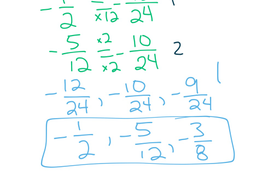 - 1/2 = ×12 - 24
- 5/12 ×2 = ×2 - 10/24 2
- 12/24 , - 10/24 , - 9/24
- 1/2 , - 5/12 , - 3/8